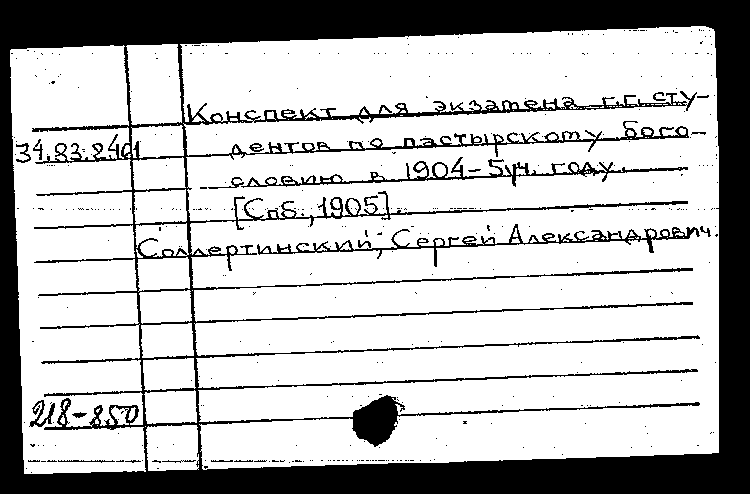 Конспект для экзамена г.г. сту-
34.83.2.401 дентов по пастырскому бого-
словию в 1904-5 уч. году.
[Спб., 1905].
Соллертинский, Сергей Александрович.
218-850